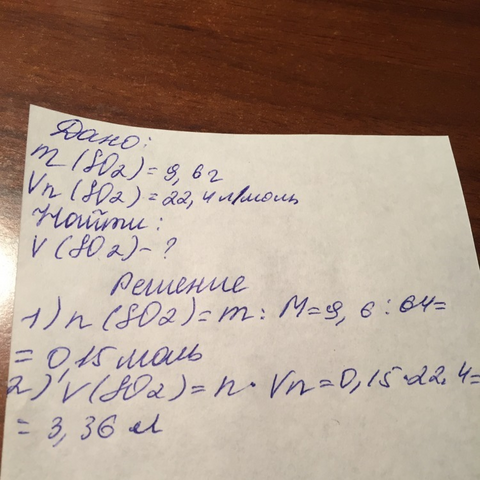 Дано:
m (SO2) = 9,6 г
Vn (SO2) = 22,4 л/моль
Найти:
V (SO2) - ?
Решение
1) n (SO2) = m : M = 9,6 : 64 =
= 0,15 моль
2) V (SO2) = n · Vn = 0,15 · 22.4 =
= 3,36 л